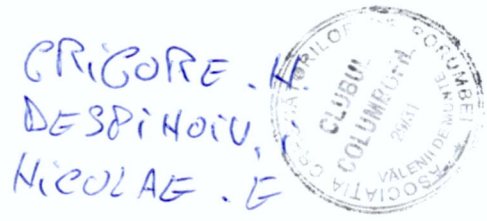 GRIGORE . H
DESPINOIU .
NICOLAE . E
ASOCIAȚIA CRESCĂTORILOR DE PORUMBEI
CLUBUL
COLUMBOFIL
29/31
VALENII DE MUNTE